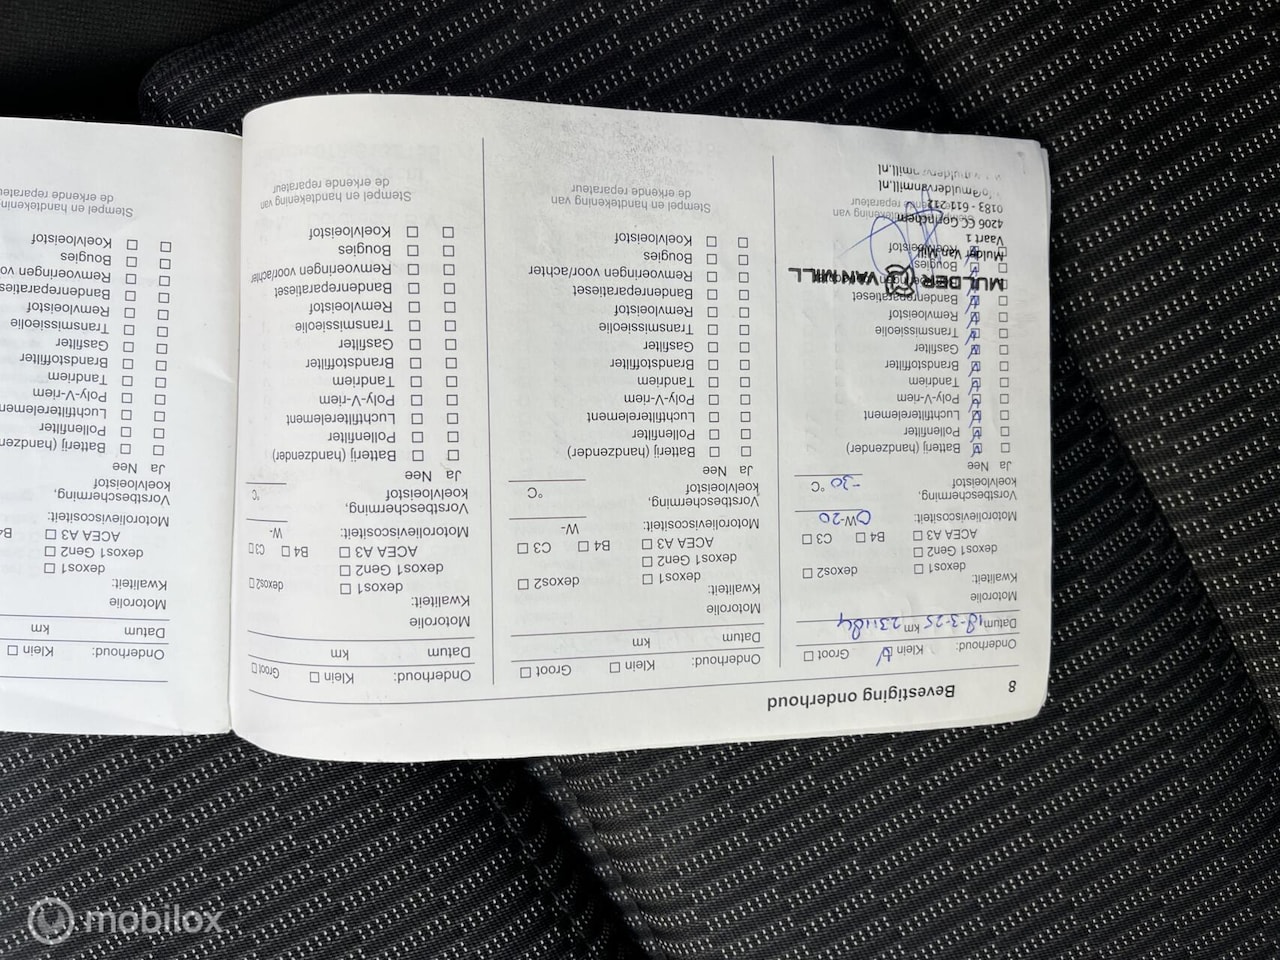 8 Bevestiging onderhoud
Onderhoud: Klein Groot
Datum 18-3-25 km 231184
Motorolie
Kwaliteit:
dexos1 dexos2
dexos1 Gen2
ACEA A3 B4 C3
Motorolieviscositeit: 0W-20
Vorstbescherming,
koelvloeistof -30 °C
Ja Nee
Batterij (handzender)
Pollenfilter
Luchtfilterelement
Poly-V-riem
Tandriem
Brandstoffilter
Gasfilter
Transmissieolie
Remvloeistof
Bandenreparatieset
Bougies
Koelvloeistof
MULDER VAN MILL
Mulder Van Mill
Vaart 1
4206 CC Gorinchem
0183 - 611212
Onderhoud: Klein Groot
Datum km
Motorolie
Kwaliteit:
dexos1 dexos2
dexos1 Gen2
ACEA A3 B4 C3
Motorolieviscositeit: W-
Vorstbescherming,
koelvloeistof °C
Ja Nee
Batterij (handzender)
Pollenfilter
Luchtfilterelement
Poly-V-riem
Tandriem
Brandstoffilter
Gasfilter
Transmissieolie
Remvloeistof
Bandenreparatieset
Remvoeringen voor/achter
Bougies
Koelvloeistof
Stempel en handtekening van
de erkende reparateur
Onderhoud: Klein Groot
Datum km
Motorolie
Kwaliteit:
dexos1 dexos2
dexos1 Gen2
ACEA A3 B4 C3
Motorolieviscositeit: W-
Vorstbescherming,
koelvloeistof °C
Ja Nee
Batterij (handzender)
Pollenfilter
Luchtfilterelement
Poly-V-riem
Tandriem
Brandstoffilter
Gasfilter
Transmissieolie
Remvloeistof
Bandenreparatieset
Remvoeringen voor/achter
Bougies
Koelvloeistof
Stempel en handtekening van
de erkende reparateur
Onderhoud: Klein
Datum km
Motorolie
Kwaliteit:
dexos1
dexos1 Gen2
ACEA A3 B4
Motorolieviscositeit:
Vorstbescherming,
koelvloeistof
Ja Nee
Batterij (handzender)
Pollenfilter
Luchtfilterelement
Poly-V-riem
Tandriem
Brandstoffilter
Gasfilter
Transmissieolie
Remvloeistof
Bandenreparatieset
Remvoeringen
Bougies
Koelvloeistof
Stempel en handtekening
de erkende reparateur
mobilox